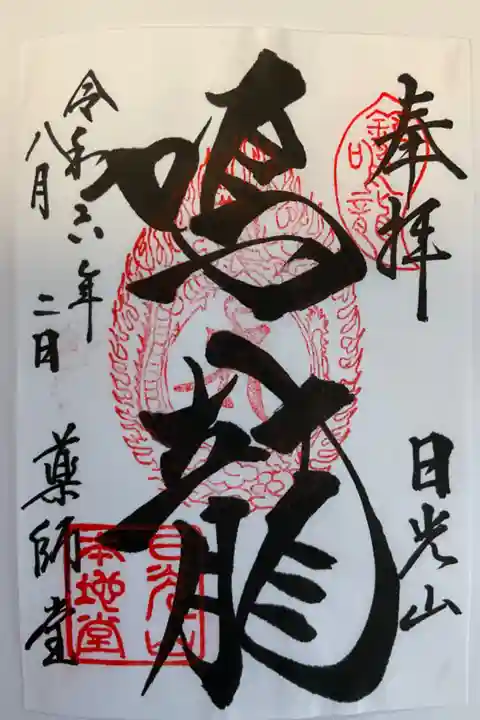 奉拝
日光山
鳴龍
令和六年
八月二日
薬師堂
鈴鳴龍
日光山
本地堂